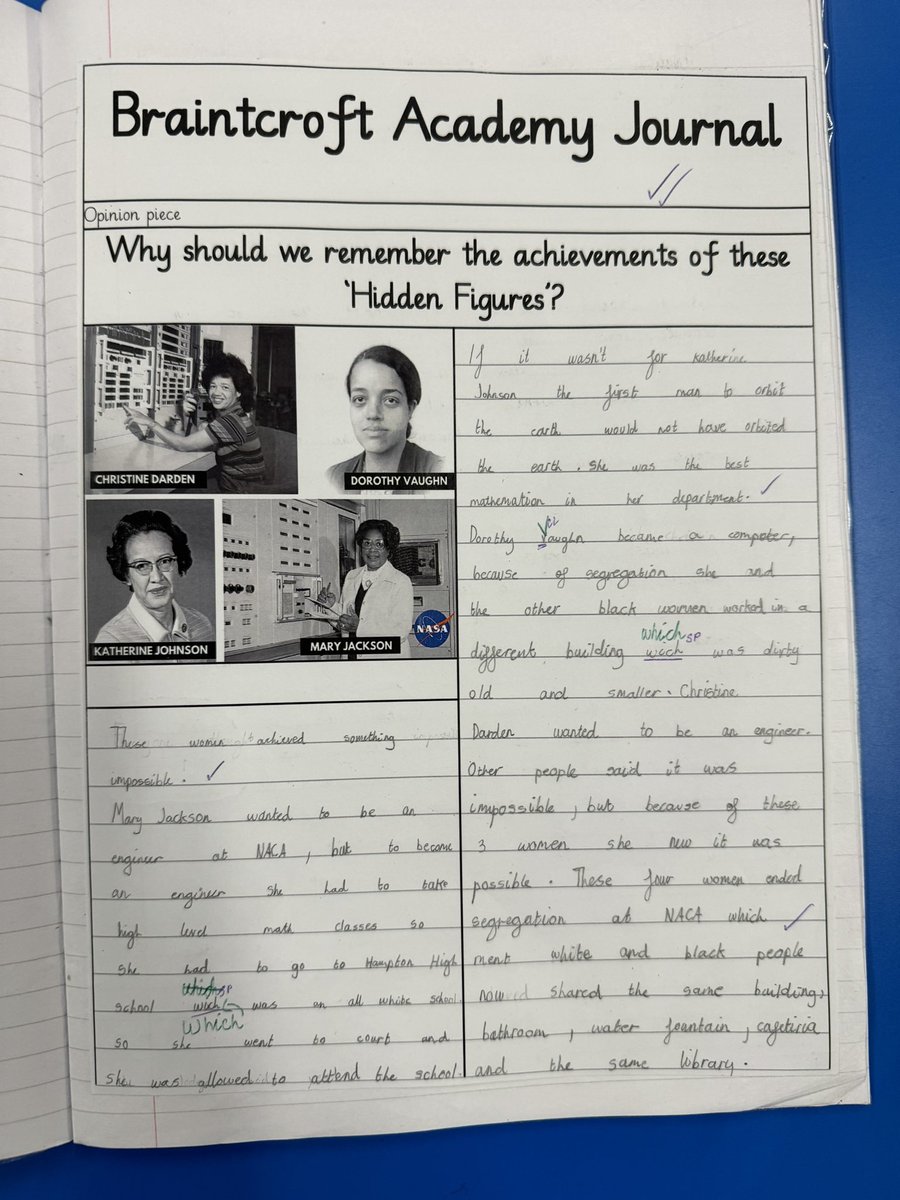 Braintcroft Academy Journal
Opinion piece
Why should we remember the achievements of these
'Hidden Figures'?
CHRISTINE DARDEN
DOROTHY VAUGHN
KATHERINE JOHNSON
MARY JACKSON
NASA
These women achieved something
impossible.
Mary Jackson wanted to be an
engineer at NACA, but to become
an engineer she had to take
high level math classes so
she had to go to Hampton High
which SP
school wich was an all white school.
which
so she went to court and
she was allowed to attend the school.
If it wasn't for Katherine
Johnson the first man to orbit
the earth would not have orbited
the earth. She was the best
mathemation in her department.
Dorothy Vaughn became a computer,
because of segregation she and
the other black women worked in a
which SP
different building wich was dirty
old and smaller. Christine
Darden wanted to be an engineer.
Other people said it was
impossible, but because of these
3 women she new it was
possible. These four women ended
segregation at NACA which
ment white and black people
now shared the same building,
bathroom, water fountain, cafetiria
and the same library.